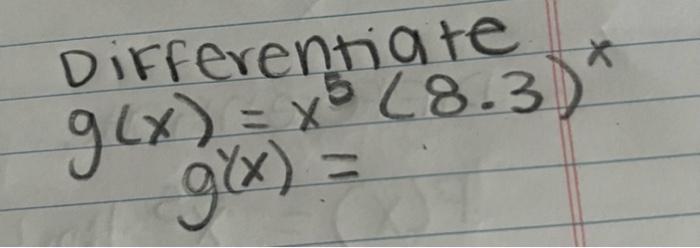 Differentiate
g(x) = x⁵ (8.3)ˣ
g'(x) =